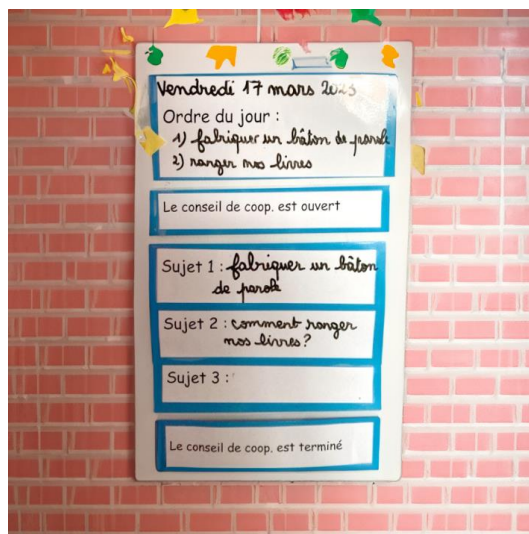 Vendredi 17 mars 2023
Ordre du jour :
1) fabriquer un bâton de parole
2) ranger nos livres
Le conseil de coop. est ouvert
Sujet 1 : fabriquer un bâton
de parole
Sujet 2 : comment ranger
nos livres ?
Sujet 3 :
Le conseil de coop. est terminé